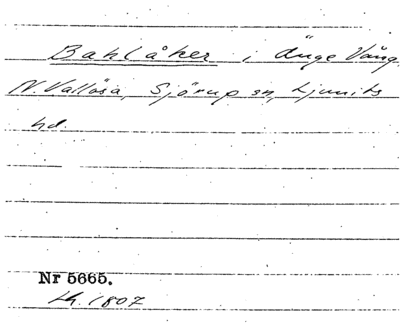 Bakkåker i Änge Vång
N. Vallösa, Sjörup sn, Ljunits
hd.
Nr 5665.
Lh. 1807